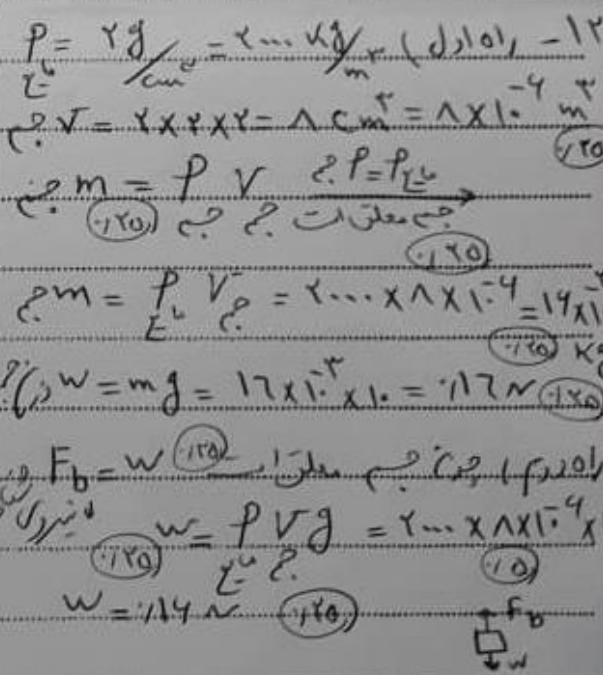 ۱۲- راه اول) ρ مایع = ۲ g/cm³ = ۲۰۰۰ kg/m³
V جسم = ۲×۲×۲ = ۸ cm³ = ۸×۱۰⁻⁶ m³ (۰/۲۵)
m جسم = ρ جسم V جسم (۰/۲۵) ρ جسم = ρ مایع جسم معلق است (۰/۲۵)
m جسم = ρ مایع V جسم = ۲۰۰۰×۸×۱۰⁻⁶ = ۱۶×۱۰⁻³ kg (۰/۲۵)
W = mg = ۱۶×۱۰⁻³×۱۰ = ۰/۱۶ N (۰/۲۵)
راه دوم) چون جسم معلق است F_b = W (۰/۲۵)
نیروی W = ρ مایع V جسم g = ۲۰۰۰×۸×۱۰⁻⁶× (۰/۲۵) (۰/۵)
W = ۰/۱۶ N (۰/۲۵)
F_b
W